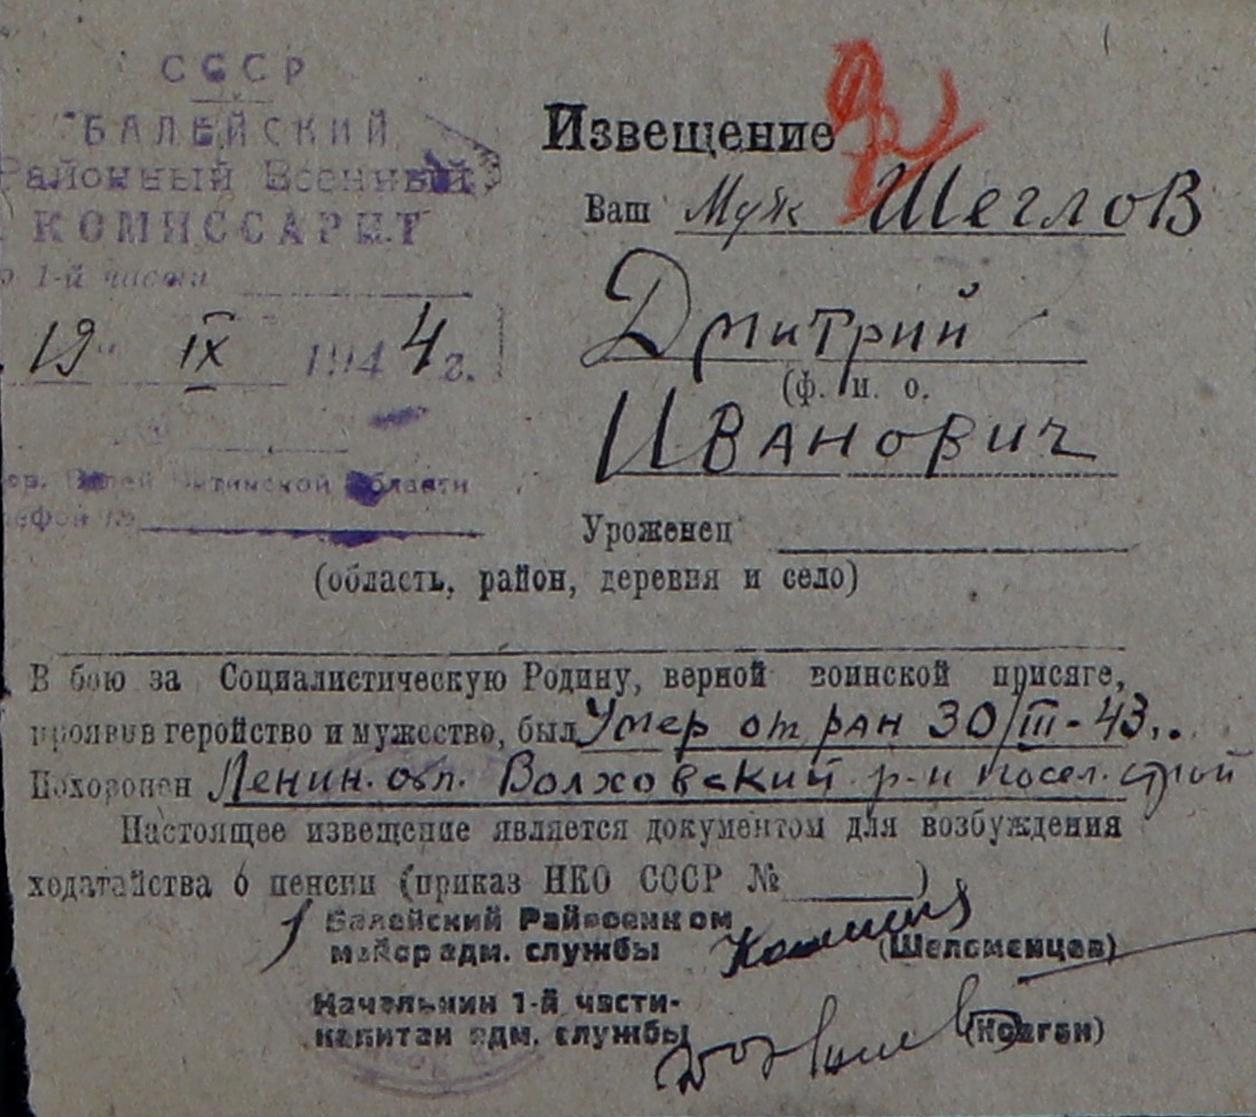 СССР
БАЛЕЙСКИЙ
Районный Военный
КОМИССАРИАТ
1-й части
19" IX 1944 г.
гор. Балей Читинской области
Телефон №
Извещение
Ваш Муж Щеглов
Дмитрий
(ф. и. о.
Иванович
Уроженец
(область, район, деревня и село)
В бою за Социалистическую Родину, верной воинской присяге,
проявив геройство и мужество, был Умер от ран 30/III-43..
Похоронен Ленин. обл. Волховский р-н посел. строй
Настоящее извещение является документом для возбуждения
ходатайства о пенсии (приказ НКО СССР № )
Балейский Райвоенком
майор адм. службы (Шеломенцев)
Начальник 1-й части-
капитан адм. службы